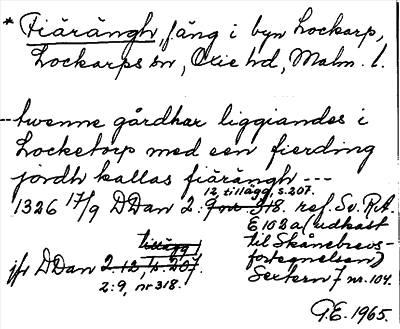 * Fiärängh, äng i byn Lockarp,
Lockarps sn, Oxie hd, Malm. l.
--- twenne gårdhar liggiandes i
Locketorp med een fierding
jordh kallas fiärängh ---
12, tillägg, s. 207.
1326 17/9 DDan 2: 9 nr 318. ref. Sv. RA.
E 103 a (udkast
til Skånebrevs-
fortegnelsen)
Sextern 7 nr. 104.
tillägg
jfr DDan 2:12, s. 207.
2:9, nr 318.
P.E. 1965.